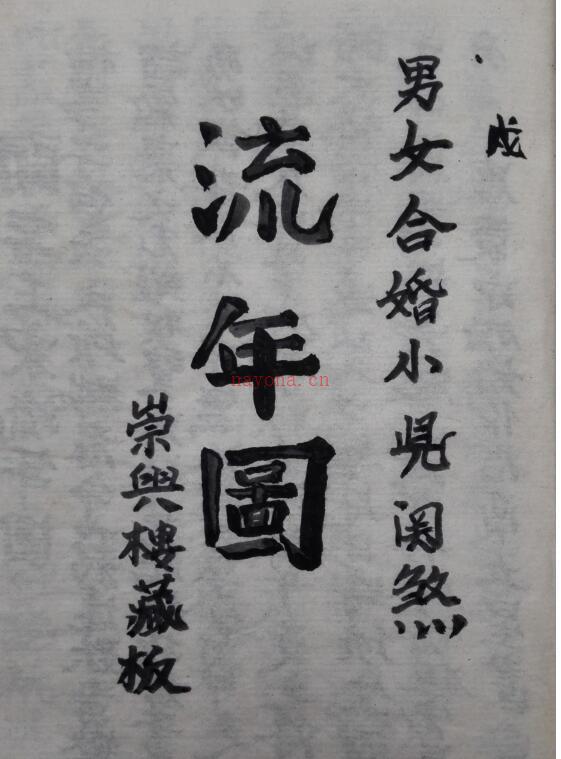 男女合婚小児関煞
流年圖
崇興樓藏板
nayona.cn